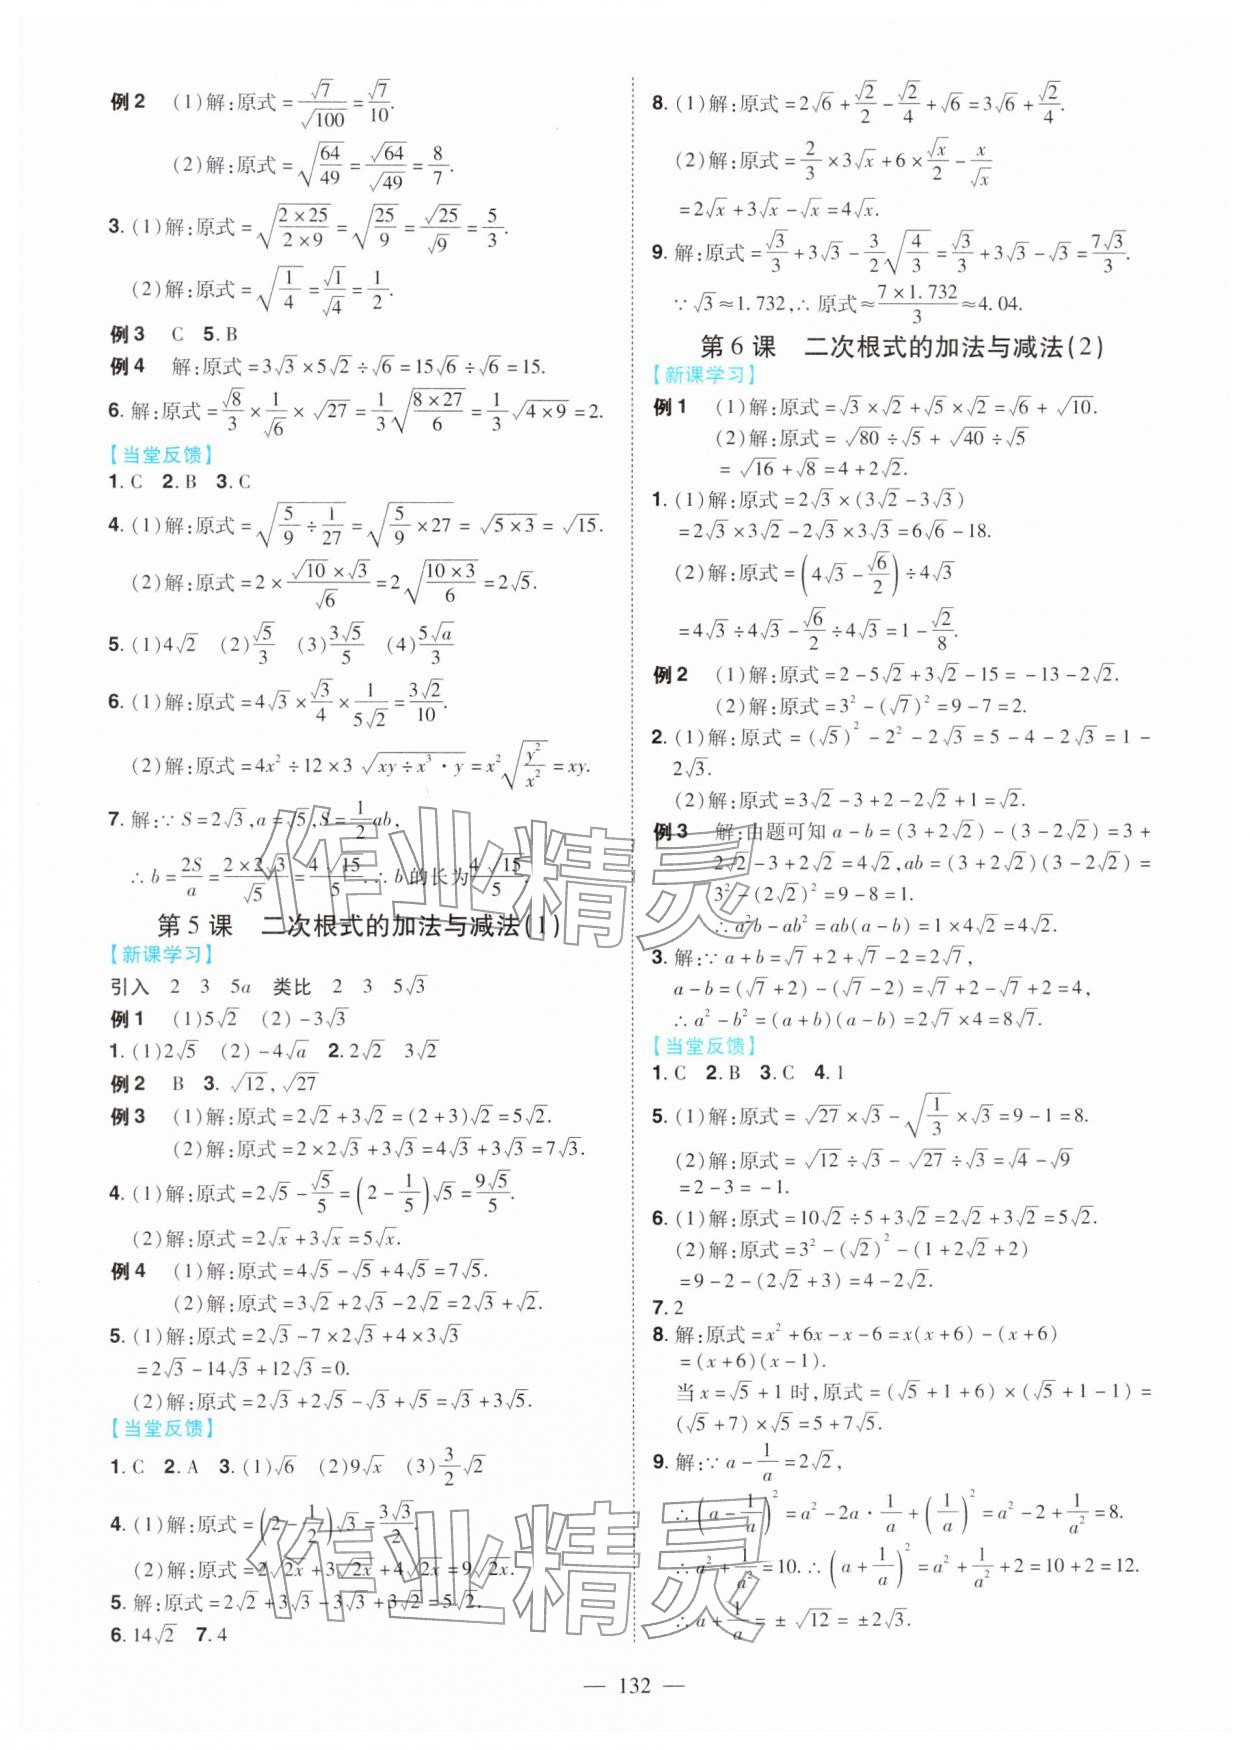 例2 (1)解:原式=√7/√100=√7/10.
(2)解:原式=√(64/49)=√64/√49=8/7.
3. (1)解:原式=√((2×25)/(2×9))=√(25/9)=√25/√9=5/3.
(2)解:原式=√(1/4)=√1/√4=1/2.
例3 C 5. B
例4 解:原式=3√3×5√2÷√6=15√6÷√6=15.
6. 解:原式=√8/3×1/√6×√27=1/3√((8×27)/6)=1/3√(4×9)=2.
【当堂反馈】
1. C 2. B 3. C
4. (1)解:原式=√(5/9÷1/27)=√(5/9×27)=√(5×3)=√15.
(2)解:原式=2×(√10×√3)/√6=2√((10×3)/6)=2√5.
5. (1)4√2 (2)√5/3 (3)3√5/5 (4)5√a/3
6. (1)解:原式=4√3×√3/4×1/(5√2)=3√2/10.
(2)解:原式=4x²÷12×3√(xy÷x³·y)=x²√(y²/x²)=xy.
7. 解:∵S=2√3,a=√5,S=1/2ab,
∴b=2S/a=(2×2√3)/√5=4√15/5.∴b的长为4√15/5.
第5课 二次根式的加法与减法(1)
【新课学习】
引入 2 3 5a 类比 2 3 5√3
例1 (1)5√2 (2)-3√3
1. (1)2√5 (2)-4√a 2. 2√2 3√2
例2 B 3. √12,√27
例3 (1)解:原式=2√2+3√2=(2+3)√2=5√2.
(2)解:原式=2×2√3+3√3=4√3+3√3=7√3.
4. (1)解:原式=2√5-√5/5=(2-1/5)√5=9√5/5.
(2)解:原式=2√x+3√x=5√x.
例4 (1)解:原式=4√5-√5+4√5=7√5.
(2)解:原式=3√2+2√3-2√2=2√3+√2.
5. (1)解:原式=2√3-7×2√3+4×3√3
=2√3-14√3+12√3=0.
(2)解:原式=2√3+2√5-√3+√5=√3+3√5.
【当堂反馈】
1. C 2. A 3. (1)√6 (2)9√x (3)3/2√2
4. (1)解:原式=(2-1/2)√3=3√3/2.
(2)解:原式=2√2x+3√2x+4√2x=9√2x.
5. 解:原式=2√2+3√3-3√3+3√2=5√2.
6. 14√2 7. 4
8. (1)解:原式=2√6+√2/2-√2/4+√6=3√6+√2/4.
(2)解:原式=2/3×3√x+6×√x/2-x/√x
=2√x+3√x-√x=4√x.
9. 解:原式=√3/3+3√3-3/2√(4/3)=√3/3+3√3-√3=7√3/3.
∵√3≈1.732,∴原式≈(7×1.732)/3≈4.04.
第6课 二次根式的加法与减法(2)
【新课学习】
例1 (1)解:原式=√3×√2+√5×√2=√6+√10.
(2)解:原式=√80÷√5+√40÷√5
=√16+√8=4+2√2.
1. (1)解:原式=2√3×(3√2-3√3)
=2√3×3√2-2√3×3√3=6√6-18.
(2)解:原式=(4√3-√6/2)÷4√3
=4√3÷4√3-√6/2÷4√3=1-√2/8.
例2 (1)解:原式=2-5√2+3√2-15=-13-2√2.
(2)解:原式=3²-(√7)²=9-7=2.
2. (1)解:原式=(√5)²-2²-2√3=5-4-2√3=1-
2√3.
(2)解:原式=3√2-3+2-2√2+1=√2.
例3 解:由题可知a-b=(3+2√2)-(3-2√2)=3+
2√2-3+2√2=4√2,ab=(3+2√2)(3-2√2)=
3²-(2√2)²=9-8=1.
∴a²b-ab²=ab(a-b)=1×4√2=4√2.
3. 解:∵a+b=√7+2+√7-2=2√7,
a-b=(√7+2)-(√7-2)=√7+2-√7+2=4,
∴a²-b²=(a+b)(a-b)=2√7×4=8√7.
【当堂反馈】
1. C 2. B 3. C 4. 1
5. (1)解:原式=√27×√3-√(1/3)×√3=9-1=8.
(2)解:原式=√12÷√3-√27÷√3=√4-√9
=2-3=-1.
6. (1)解:原式=10√2÷5+3√2=2√2+3√2=5√2.
(2)解:原式=3²-(√2)²-(1+2√2+2)
=9-2-(2√2+3)=4-2√2.
7. 2
8. 解:原式=x²+6x-x-6=x(x+6)-(x+6)
=(x+6)(x-1).
当x=√5+1时,原式=(√5+1+6)×(√5+1-1)=
(√5+7)×√5=5+7√5.
9. 解:∵a-1/a=2√2,
∴(a-1/a)²=a²-2a·1/a+(1/a)²=a²-2+1/a²=8.
∴a²+1/a²=10.∴(a+1/a)²=a²+1/a²+2=10+2=12.
∴a+1/a=±√12=±2√3.
— 132 —
作业精灵
作业精灵